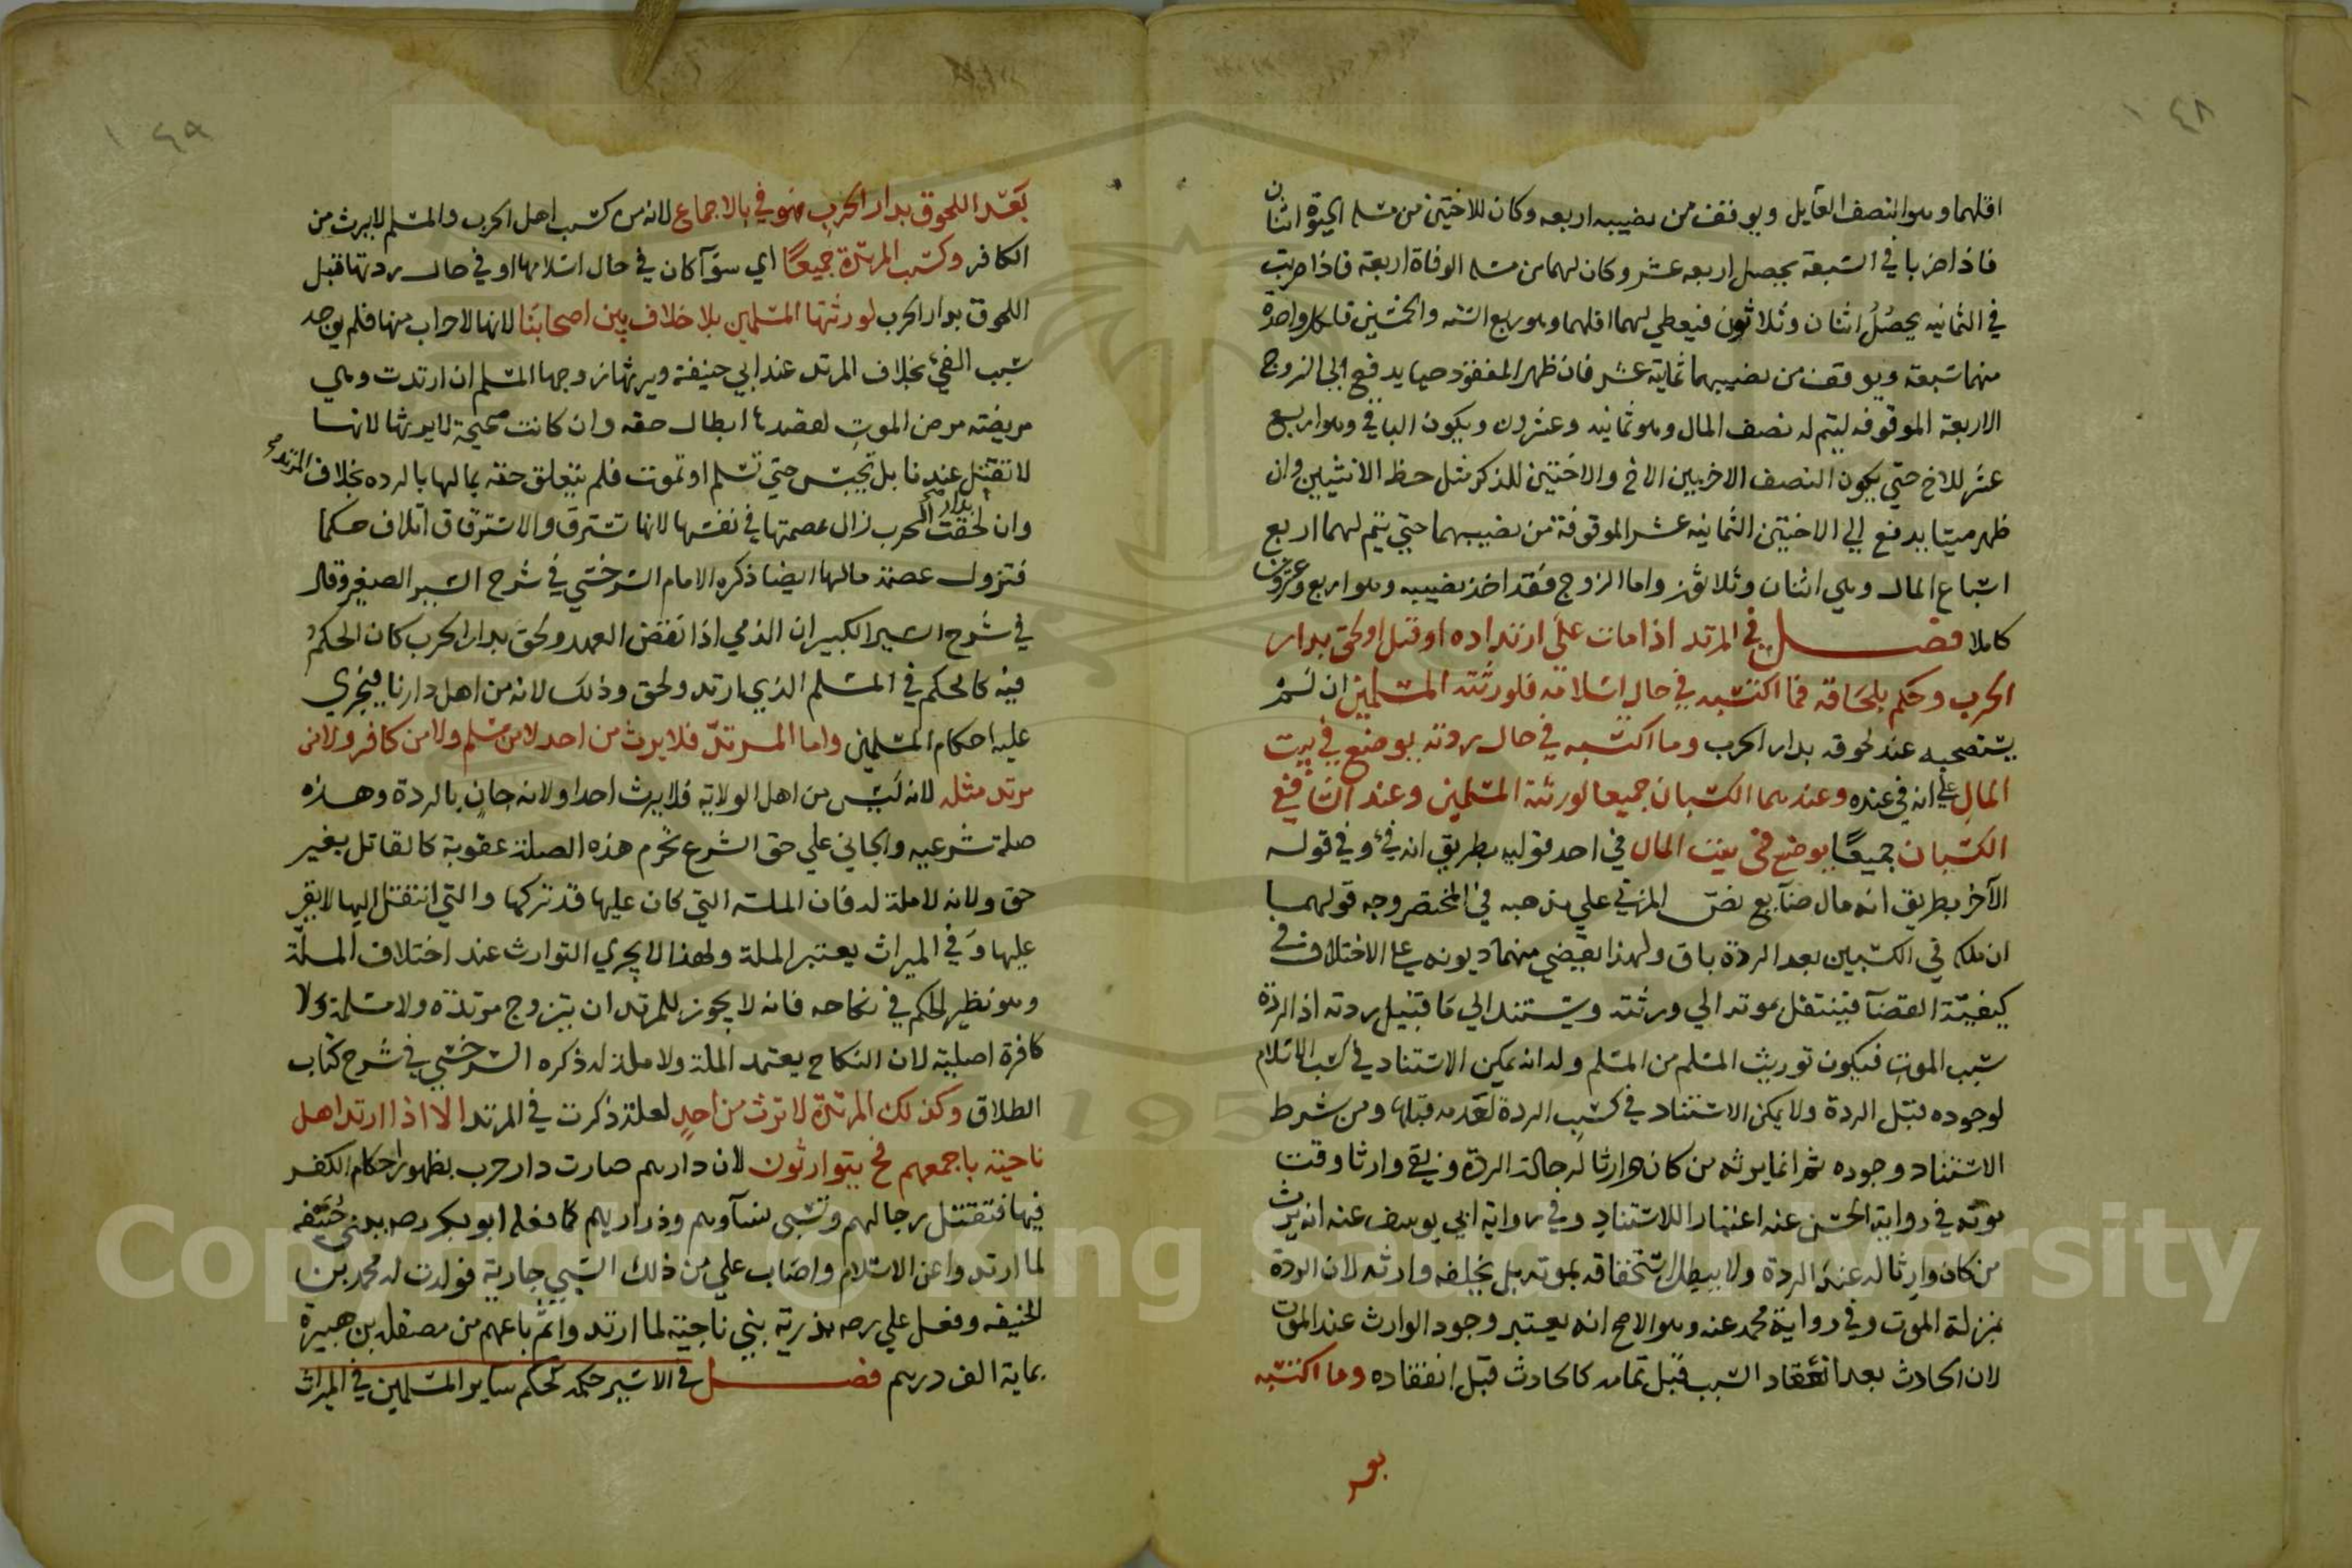 ٤٨
اقلهما وهو النصف العايل ويوقف من نصيبه اربعه وكان للاختين من مسله الحيوة اثنان
فاذا ضربا في السبعة يحصل اربعه عشر وكان لهما من مسله الوفاة اربعة فاذا ضربت
في الثمانيه يحصل اثنان وثلاثون فيعطي لهما اقلهما وهو ربع السته والخمسين فلكل واحدة
منهما سبعة ويوقف من نصيبهما ثمانية عشر فان ظهر المفقود حيا يدفع الي الزوج
الاربعة الموقوفه ليتم له نصف المال وهو ثمانيه وعشرون ويكون الباقي وهو اربع
عشر للاخ حتي يكون النصف الاخر بين الاخ والاختين للذكر مثل حظ الانثيين وان
ظهر ميتا يدفع الي الاختين الثمانيه عشر الموقوفة من نصيبهما حتي يتم لهما اربع
اسباع المال وهي اثنان وثلاثون واما الزوج فقد اخذ نصيبه وهو اربع وعشرون
كاملا فصل في المرتد اذا مات علي ارتداده او قتل او لحق بدار
الحرب وحكم بلحاقه فما اكتسبه في حال اسلامه فلورثته المسلمين ان لم
يستصحبه عند لحوقه بدار الحرب وما اكتسبه في حال ردته يوضع في بيت
المال علي انه في عنده وعندهما الكسبان جميعا لورثته المسلمين وعند الشافعي
الكسبان جميعا يوضع في بيت المال في احد قوليه بطريق انه فيء وفي قوله
الآخر بطريق انه مال ضآيع نص المزني علي مذهبه في المختصر وجه قولهما
ان ملكه في الكسبين بعد الردة باق ولهذا يقضي منهما ديونه علي الاختلاف في
كيفيّة القضآ فينتقل بموته الي ورثته ويستند الي ما قبيل ردته اذ الردة
سبب الموت فيكون توريث المسلم من المسلم وله انه يمكن الاستناد في كسب الاسلام
لوجوده قبل الردة ولا يمكن الاستناد في كسب الردة لعدمه قبلها ومن شرط
الاستناد وجوده ثم انما يرثه من كان وارثا له حالة الردة وبقي وارثا وقت
موته في رواية الحسن عنه اعتبارا للاستناد وفي رواية ابي يوسف عنه انه يرث
من كان وارثا له عند الردة ولا يبطل استحقاقه بموته بل يخلفه وارثه لان الردة
بمنزلة الموت وفي رواية محمد عنه وهو الاصح انه يعتبر وجود الوارث عند الموت
لان الحادث بعد انعقاد السبب قبل تمامه كالحادث قبل انعقاده وما اكتسبه
٤٩
بعد اللحوق بدار الحرب فهو في بالاجماع لانه من كسب اهل الحرب والمسلم لا يرث من
الكافر وكسب المرتدة جميعًا اي سوآ كان في حال اسلامها او في حال ردتها قبل
اللحوق بدار الحرب لورثتها المسلمين بلا خلاف بين اصحابنا لانها لا حراب منها فلم يوجد
سبب الفيء بخلاف المرتد عند ابي حنيفة ويرثها زوجها المسلم ان ارتدت وهي
مريضة مرض الموت لقصدها ابطال حقه وان كانت صحيحة لا يرثها لانها
لا تقتل عندنا بل تحبس حتي تسلم او تموت فلم يتعلق حقه بمالها بالرده بخلاف المرتد
وان لحقت بدار الحرب زال عصمتها في نفسها لانها تسترق والاسترقاق اتلاف حكما
فتزول عصمة مالها ايضا ذكره الامام السرخسي في شرح السير الصغير وقال
في شرح السير الكبير ان الذمي اذا نقض العهد ولحق بدار الحرب كان الحكم
فيه كالحكم في المسلم الذي ارتد ولحق وذلك لانه من اهل دارنا فيجري
عليه احكام المسلمين واما المرتدّ فلا يرث من احد لا من مسلم ولا من كافر ولا من
مرتد مثله لانه ليس من اهل الولاية فلا يرث احدا ولانه جانٍ بالردة وهذه
صلة شرعيه والجاني علي حق الشرع تحرم هذه الصلة عقوبة كالقاتل بغير
حق ولانه لا ملة له فان الملة التي كان عليها قد تركها والتي انتقل اليها لا يقر
عليها وفي الميراث يعتبر الملة ولهذا لا يجري التوارث عند اختلاف الملة
وهو نظير الحكم في نكاحه فانه لا يجوز للمرتد ان يتزوج مرتدة ولا مسلمة ولا
كافرة اصلية لان النكاح يعتمد الملة ولا ملة له ذكره السرخسي في شرح كتاب
الطلاق وكذلك المرتدة لا ترث من احدٍ لعلة ذكرت في المرتد الا اذا ارتد اهل
ناحية باجمعهم فح يتوارثون لان دارهم صارت دار حرب بظهور احكام الكفر
فيها فتقتل رجالهم وتسبى نسآوهم وذراريهم كما فعله ابو بكر رضه ببني حنيفه
لما ارتدوا عن الاسلام واصاب علي من ذلك السبي جارية فولدت له محمد بن
الحنيفه وفعل علي رضه بذرية بني ناجية لما ارتدوا ثم باعهم من مصقله بن هبيرة
بماية الف درهم فصل في الاسير حكمه كحكم ساير المسلمين في الميراث